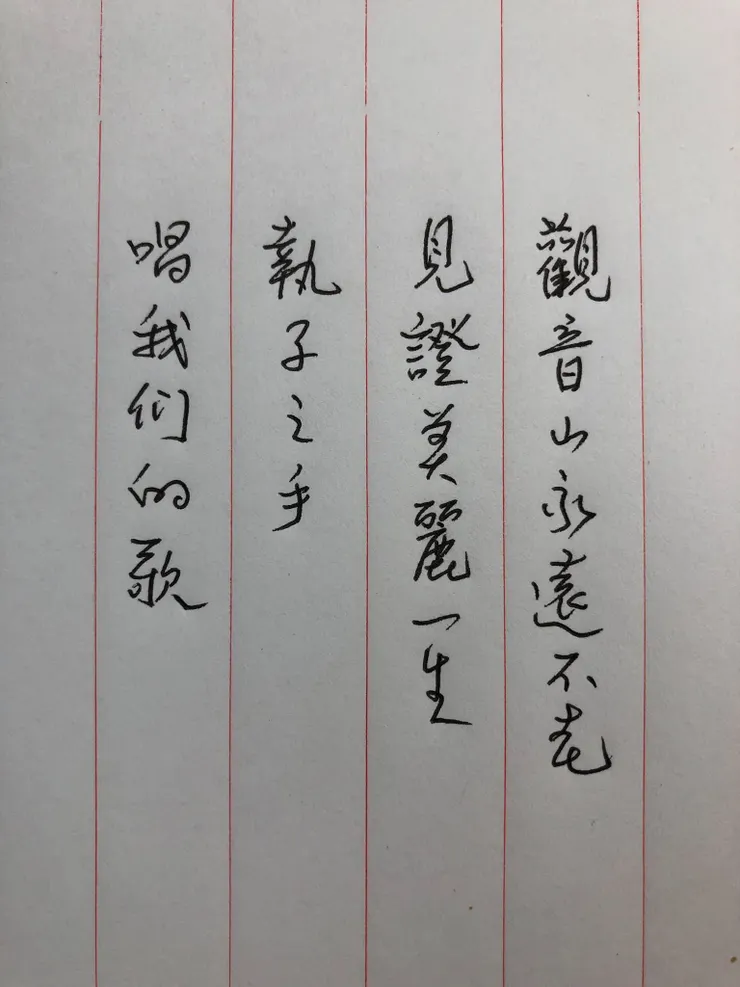 觀音山永遠不老
見證美麗一生
執子之手
唱我们的歌